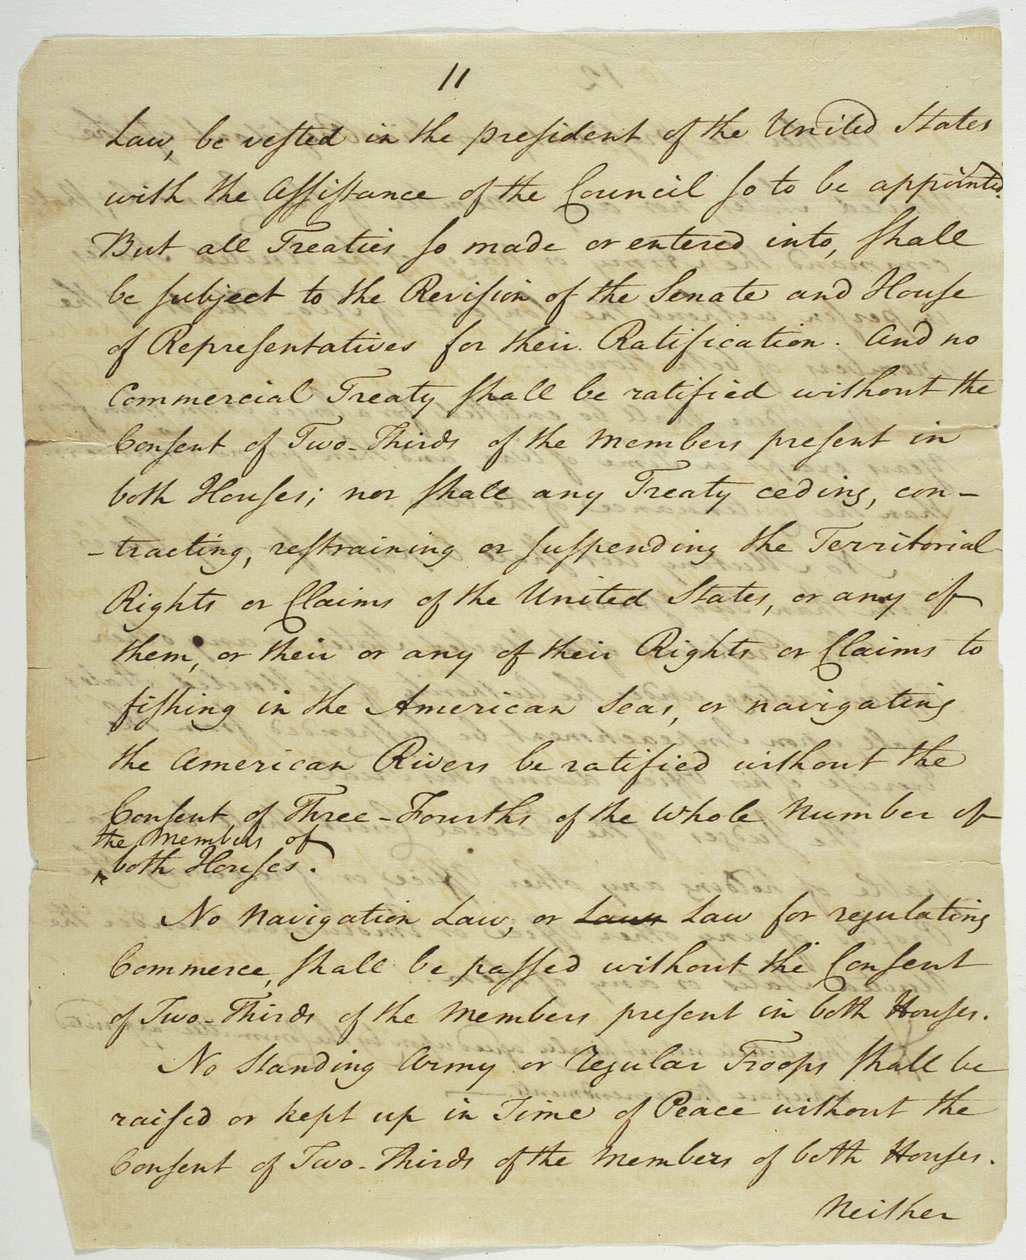 11
Law, be vested in the president of the United States
with the Assistance of the Council so to be appointed.
But all Treaties so made or entered into, shall
be subject to the Revision of the Senate and House
of Representatives for their Ratification. And no
Commercial Treaty shall be ratified without the
Consent of Two-Thirds of the Members present in
both Houses; nor shall any Treaty ceding, con-
-tracting, restraining or suspending the Territorial
Rights or Claims of the United States, or any of
them, or their or any of their Rights or Claims to
fishing in the American Seas, or navigating
the American Rivers be ratified without the
Consent of Three-Fourths of the whole Number of
the Members of
both Houses.
No Navigation Law, or Laws Law for regulating
Commerce, shall be passed without the Consent
of Two-Thirds of the Members present in both Houses.
No Standing Army or Regular Troops shall be
raised or kept up in Time of Peace without the
Consent of Two-Thirds of the Members of both Houses.
Neither